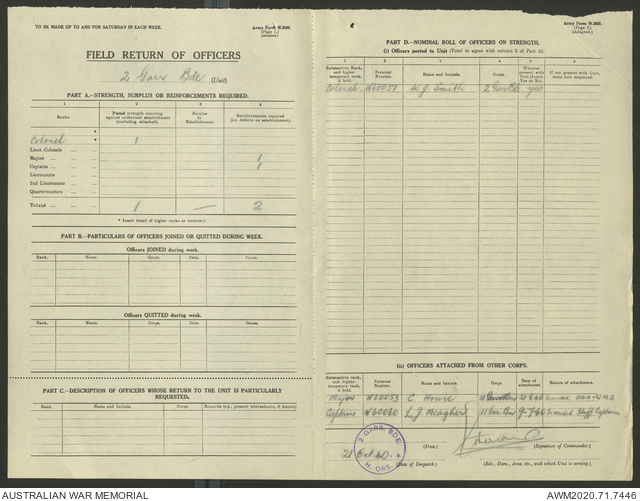 TO BE MADE UP TO AND FOR SATURDAY IN EACH WEEK.
Army Form W.3008.
(Page 1.)
(Adapted.)
FIELD RETURN OF OFFICERS
2 Garr Bde (Unit)
PART A.—STRENGTH, SURPLUS OR REINFORCEMENTS REQUIRED.
1 2 3 4
Ranks. Posted strength counting against authorized establishment (excluding attached). Surplus to Establishment. Reinforcements required (i.e. deficits on establishment).
*
Colonel * 1
Lieut.-Colonels
Majors 1
Captains 1
Lieutenants
2nd Lieutenants
Quartermasters
TOTALS 1 — 2
* Insert detail of higher ranks as necessary.
PART B.—PARTICULARS OF OFFICERS JOINED OR QUITTED DURING WEEK.
Officers JOINED during week.
Rank. Name. Corps. Date. Cause.
Officers QUITTED during week.
Rank. Name. Corps. Date. Cause.
PART C.—DESCRIPTION OF OFFICERS WHOSE RETURN TO THE UNIT IS PARTICULARLY REQUESTED.
Rank. Name and Initials. Corps. Remarks (e.g., present whereabouts, if known)
Army Form W.3008.
(Page 2.)
(Adapted.)
PART D.—NOMINAL ROLL OF OFFICERS ON STRENGTH.
(i) Officers posted to Unit (Total to agree with column 2 of Part A).
1 2 3 4 5 6
Substantive Rank, and higher temporary rank, if held. Personal Number. Name and Initials. Corps. Whether present with Unit (Insert Yes or No). If not present with Unit, state how employed.
Colonel N60058 W. J. Smith 2 Garr Bde yes
(ii) OFFICERS ATTACHED FROM OTHER CORPS.
Substantive rank, and higher temporary rank, if held. Personal Number. Name and Initials. Corps. Date of attachment. Nature of attachment.
Major N60053 C. Howie 11 Garr Bn
Captain N60060 L. J. Meagher 11 Gar Bn 9-7-40 Staff Captain
2 GARR. BDE.
H. QRS.
21 Oct 40
(Unit.) (Signature of Commander.)
(Date of Despatch) (Bde., Divn., Area, etc., with which Unit is serving.)
AUSTRALIAN WAR MEMORIAL
AWM2020.71.7446